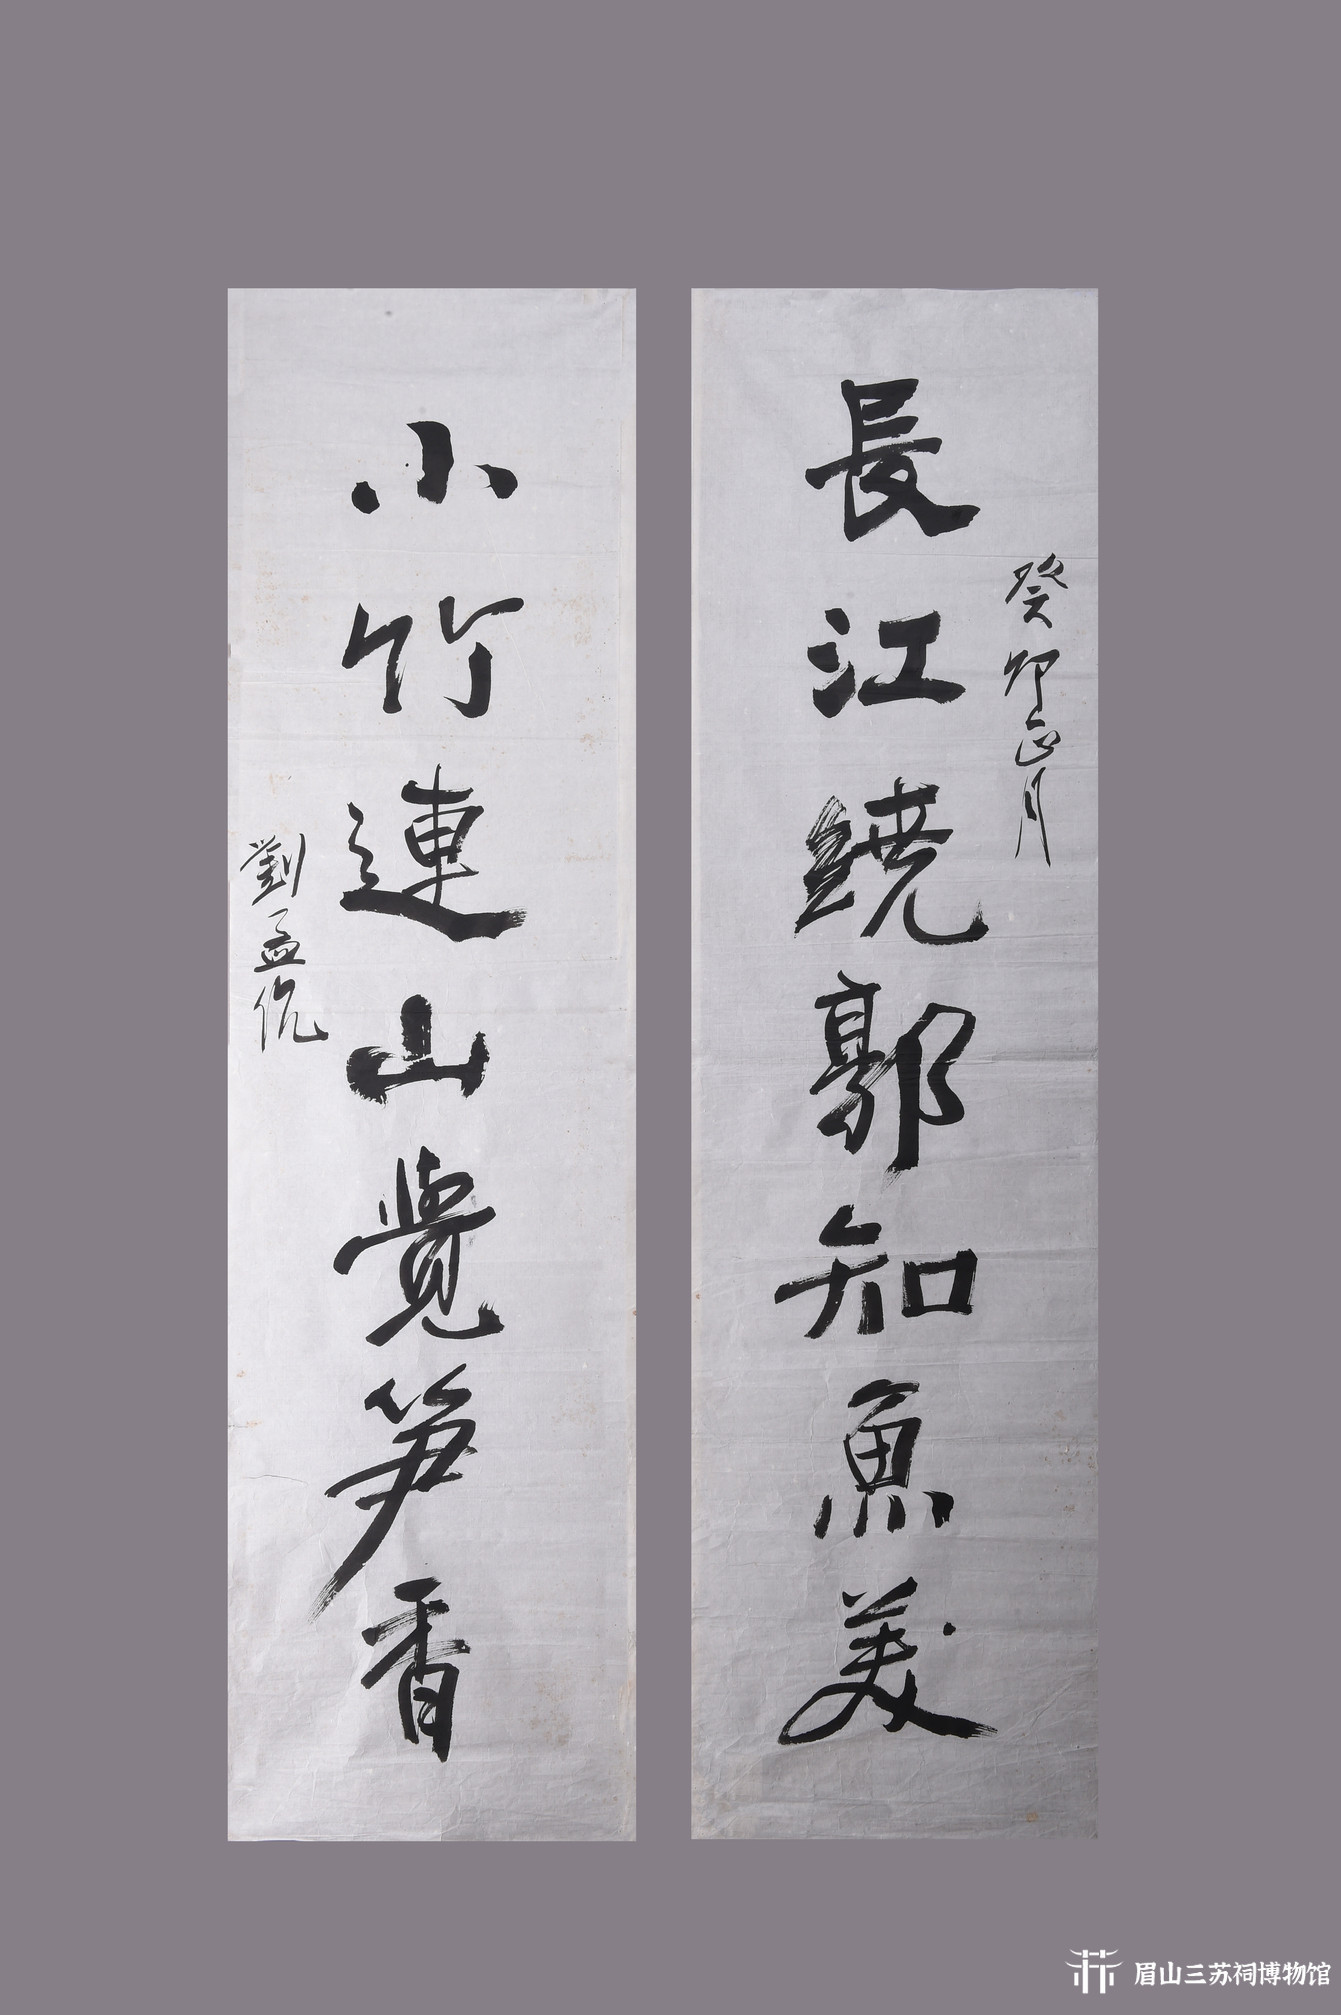 長江繞郭知魚美
癸卯正月
小竹連山覺笋香
劉孟伉
眉山三苏祠博物馆